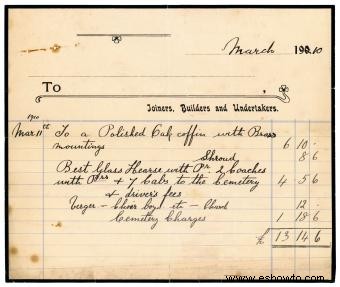 March 1910
To
Joiners, Builders and Undertakers.
1910
Mar. 11th To a Polished Oak coffin with Brass
mountings 6 10 -
Shroud 8 6
Best Glass Hearse with Pr. 2 Coaches
with Prs & 7 Cabs to the Cemetery 4 5 6
& drivers fees
Verger - Choir boys etc - Church 12 -
Cemetery Charges 1 18 6
£ 13 14 6
www.eshowto.com